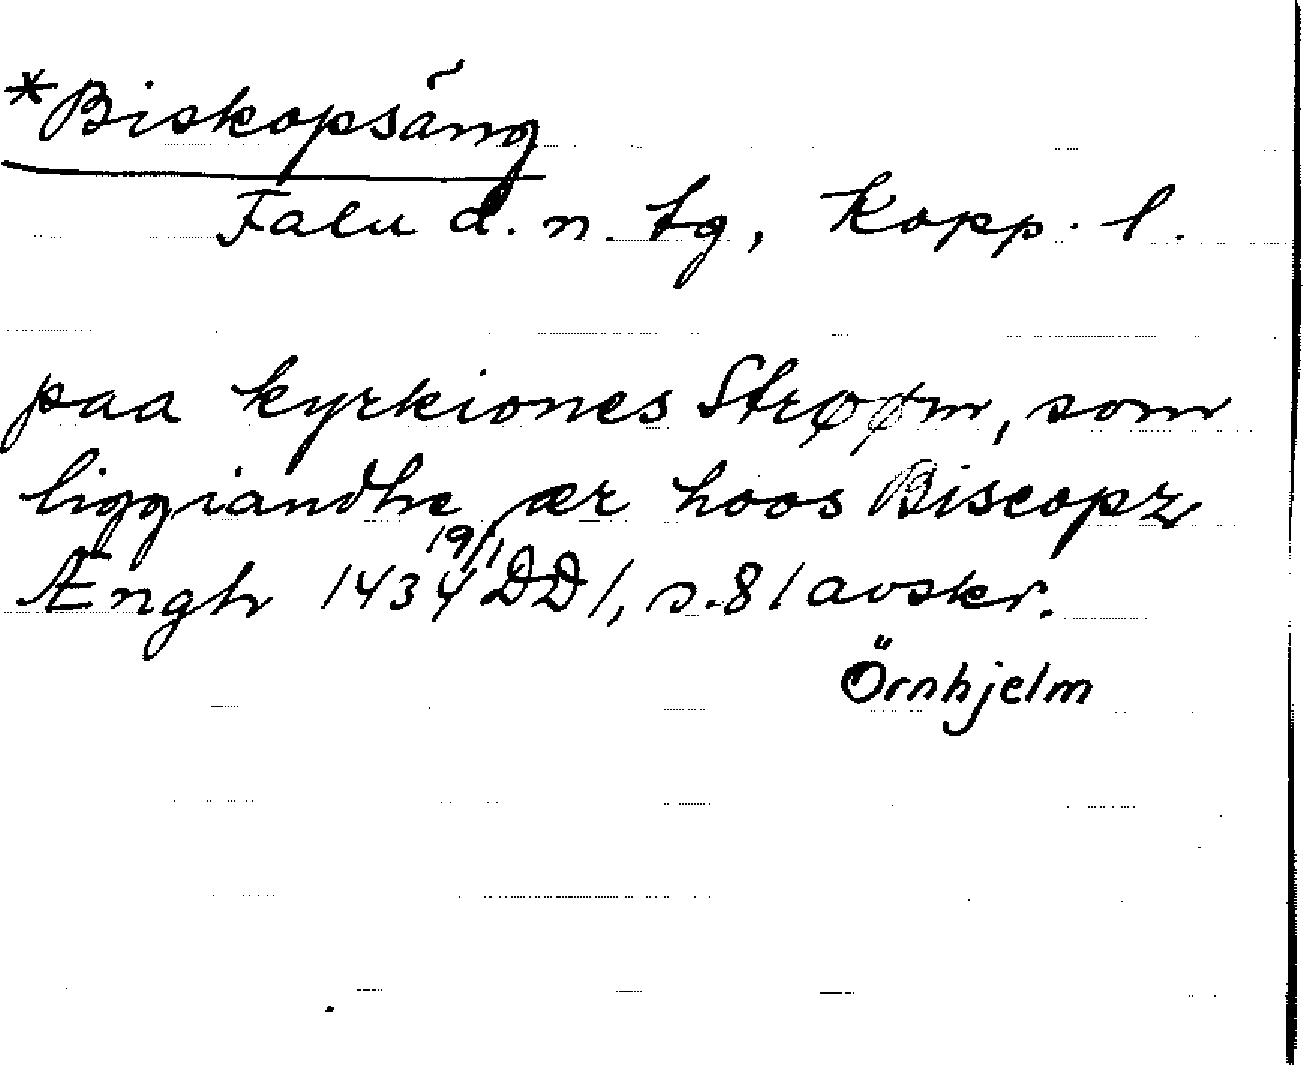 *Biskopsäng
Falu d. n. tg, Kopp. l.
paa kyrkiones Strøøm, som
liggiandhe ær hoos Biscopz
Ængh 1434 19/1 DD 1, s. 81 avskr.
Örnhjelm